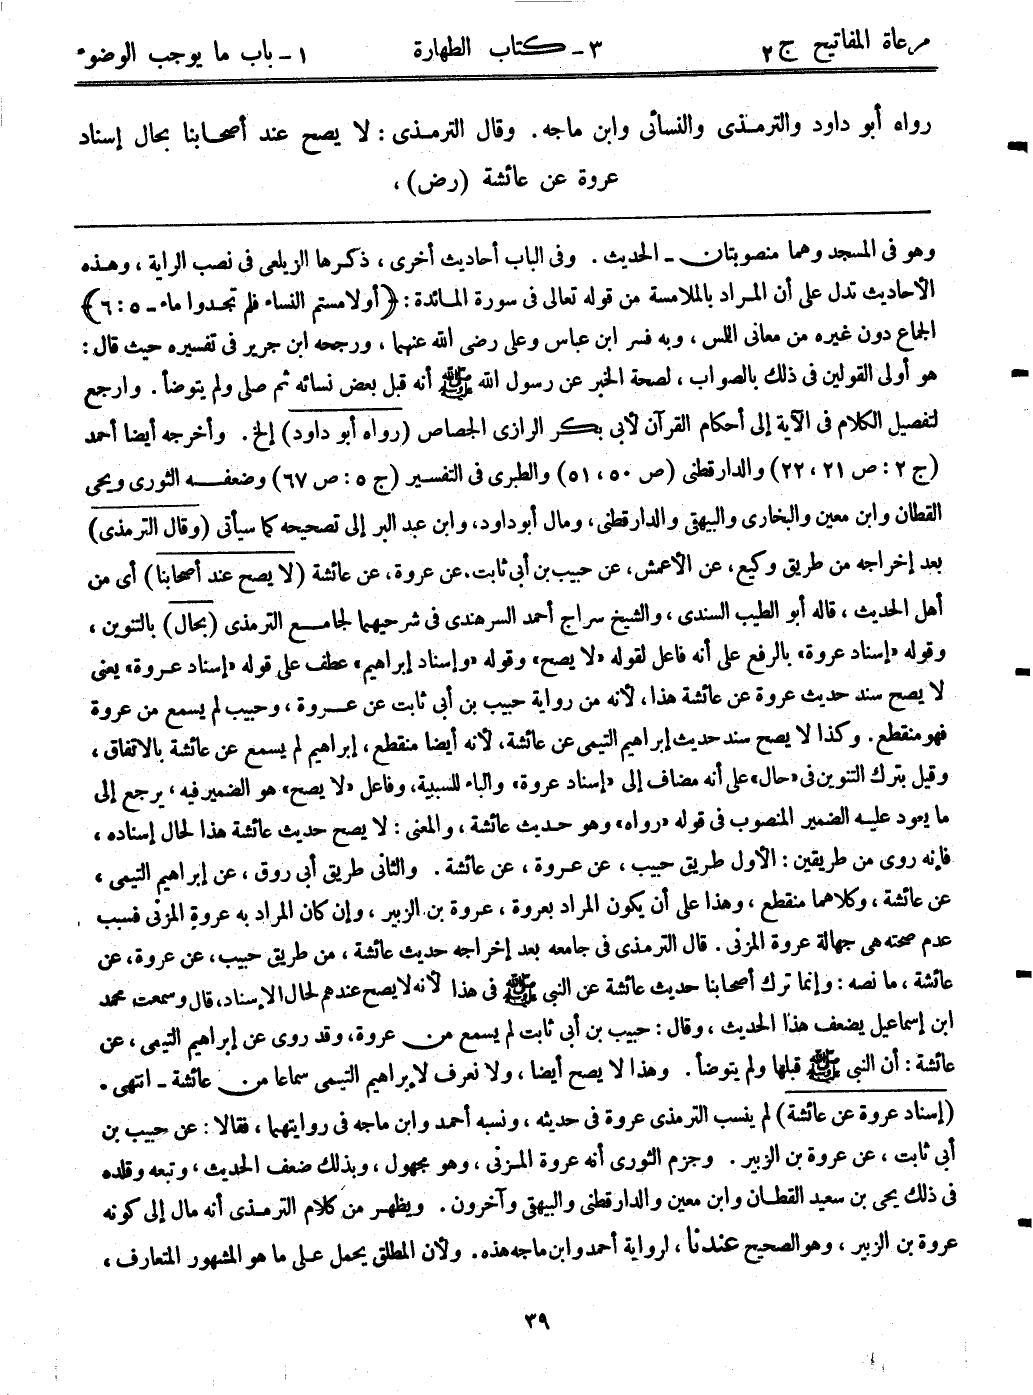 مرعاة المفاتيح ج ٢
٣ - كتاب الطهارة
١ - باب ما يوجب الوضوء
رواه أبو داود والترمذى والنسائى وابن ماجه. وقال الترمذى: لا يصح عند أصحابنا بحال إسناد
عروة عن عائشة (رض)،
وهو فى المسجد وهما منصوبتان - الحديث. وفى الباب أحاديث أخرى، ذكرها الزيلعى فى نصب الراية، وهذه
الأحاديث تدل على أن المراد بالملامسة من قوله تعالى فى سورة المائدة: ﴿أولامستم النساء فلم تجدوا ماء - ٥: ٦﴾
الجماع دون غيره من معانى اللمس، وبه فسر ابن عباس وعلى رضى الله عنهما، ورجحه ابن جرير فى تفسيره حيث قال:
هو أولى القولين فى ذلك بالصواب، لصحة الخبر عن رسول الله ﷺ أنه قبل بعض نسائه ثم صلى ولم يتوضأ. وارجع
لتفصيل الكلام فى الآية إلى أحكام القرآن لأبى بكر الرازى الجصاص (رواه أبو داود) إلخ. وأخرجه أيضا أحمد
(ج ٢: ص ٢١، ٢٢) والدارقطنى (ص ٥٠، ٥١) والطبرى فى التفسير (ج ٥: ص ٦٧) وضعفه الثورى ويحى
القطان وابن معين والبخارى والبيهقى والدارقطنى، ومال أبوداود، وابن عبد البر إلى تصحيحه كما سيأتى (وقال الترمذى)
بعد إخراجه من طريق وكيع، عن الأعمش، عن حبيب بن أبى ثابت، عن عروة، عن عائشة (لا يصح عند أصحابنا) أى من
أهل الحديث، قاله أبو الطيب السندى، والشيخ سراج أحمد السرهندى فى شرحيهما لجامع الترمذى (بحال) بالتنوين،
وقوله «إسناد عروة» بالرفع على أنه فاعل لقوله «لا يصح» وقوله «وإسناد إبراهيم» عطف على قوله «إسناد عروة» يعنى
لا يصح سند حديث عروة عن عائشة هذا، لأنه من رواية حبيب بن أبى ثابت عن عروة، وحبيب لم يسمع من عروة
فهو منقطع. وكذا لا يصح سند حديث إبراهيم التيمى عن عائشة، لأنه أيضا منقطع، إبراهيم لم يسمع عن عائشة بالاتفاق،
وقيل بترك التنوين فى «حال» على أنه مضاف إلى «إسناد عروة» والباء للسببية، وفاعل «لا يصح» هو الضمير فيه، يرجع إلى
ما يعود عليه الضمير المنصوب فى قوله «رواه» وهو حديث عائشة، والمعنى: لا يصح حديث عائشة هذا لحال إسناده،
فإنه روى من طريقين: الأول طريق حبيب، عن عروة، عن عائشة. والثانى طريق أبى روق، عن إبراهيم التيمى،
عن عائشة، وكلاهما منقطع، وهذا على أن يكون المراد بعروة، عروة بن الزبير، وإن كان المراد به عروة المزنى فسبب
عدم صحته هى جهالة عروة المزنى. قال الترمذى فى جامعه بعد إخراجه حديث عائشة، من طريق حبيب، عن عروة، عن
عائشة، ما نصه: وإنما ترك أصحابنا حديث عائشة عن النبى ﷺ فى هذا لأنه لا يصح عندهم لحال الإسناد، قال وسمعت محمد
ابن إسماعيل يضعف هذا الحديث، وقال: حبيب بن أبى ثابت لم يسمع من عروة، وقد روى عن إبراهيم التيمى، عن
عائشة: أن النبى ﷺ قبلها ولم يتوضأ. وهذا لا يصح أيضا، ولا نعرف لإبراهيم التيمى سماعا من عائشة - انتهى.
(إسناد عروة عن عائشة) لم ينسب الترمذى عروة فى حديثه، ونسبه أحمد وابن ماجه فى روايتهما، فقالا: عن حبيب بن
أبى ثابت، عن عروة بن الزبير. وجزم الثورى أنه عروة المزنى، وهو مجهول، وبذلك ضعف الحديث، وتبعه وقلده
فى ذلك يحى بن سعيد القطان وابن معين والدارقطنى والبيهقى وآخرون. ويظهر من كلام الترمذى أنه مال إلى كونه
عروة بن الزبير، وهو الصحيح عندنا، لرواية أحمد وابن ماجه هذه. ولأن المطلق يحمل على ما هو المشهور المتعارف،
٣٩